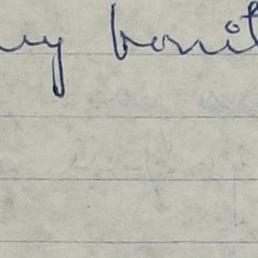 uy bonit